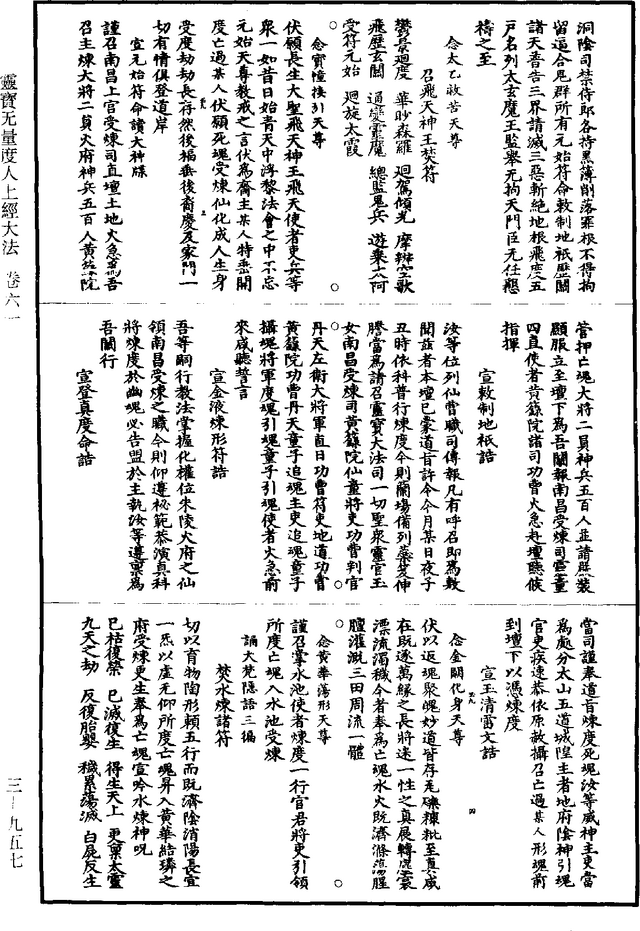 洞陰司禁侍郎各持黑簿削落罪根不得拘
留逼合咫群所有元始符命敕制地祇歷關
諸天普告三界請滅三惡斬絕地根飛度五
戶名列太玄魔王監舉无拘天門臣无任懇
禱之至
念太乙救苦天尊
召飛天神王焚符
鬱長迴度 華眇森羅 迴駕傾光 摩辯空歌
飛歷玄關 適 靈魔 總監鬼兵 遊樂太阿
受符元始 迴旋太霞
念寶幢接引天尊
伏願長生大聖飛天神王飛天使者吏兵等
眾一如昔日始青天中浮黎法會之中不忘
元始天尊教戒之言伏為齋主某人特垂開
度亡過某人伏願死魂受煉仙化成人生身
受度劫劫長存然後福垂後裔慶及家門一
切有情俱登道岸
宣元始符命請大神牒
謹召南昌上官受煉司直壇土地火急為吾
召主煉大將二員火府神兵五百人黃籙院
管押亡魂大將二員神兵五百人並請嚴裝
顯服立至壇下為吾關報南昌受煉司靈童
四直使者黃籙院諸司功曹火急赴壇聽候
指揮
宣敕制地祇誥
汝等位列仙曹職司傳報凡有呼召即為敷
聞茲者本壇已蒙道旨許今今月某日夜子
丑時依科普行煉度今則蘭場備列藥茇伸
謄當為請召靈寶大法司一切聖眾靈官玉
女南昌受煉司黃籙院仙童將吏功曹判官
丹天左衛大將軍直日功曹符吏地道功曹
黃籙院功曹丹天童子追魂主吏追魂童子
攝魂將軍度魂引魂童子引魂使者火急前
來咸聽誓言
宣金液煉形符誥
吾等嗣行教法掌握化權位朱陵火府之仙
領南昌受煉之職今則仰遵祕範恭演真科
將煉度於幽魂必告盟於主執汝等遵稟為
吾關行
宣登真度命誥
當司謹奉道旨煉度死魂汝等威神主吏當
為處分太山五道城隍主者地府陰神引魂
官吏疾速恭依原赦攝召亡過某人形魂前
到壇下以憑煉度
宣玉清雷文誥
念金闕化身天尊
伏以返魂聚魄妙道皆存
在既遂萬緣之長將遠一性之真展轉
漂流濁穢今者奉為亡魂水火既濟滌蕩腥
膻灌溉三田周流一體
念黃華蕩形天尊
謹召掌水池使者煉度一行官君將吏引領
所度亡魂入水池受煉
誦大梵隱語三編
焚水煉諸符
切以育物陶形賴五行而既濟陰消陽長宜
一炁以虛无仰所度亡魂昇入黃華結璘之
府受煉更生奉為亡魂宣吟水煉神呪
已枯復榮 已滅復生 得生天上 更稟太靈
九天之劫 反復胎嬰 穢累蕩滅 白屍反生
靈寶无量度人上經大法 卷六一
三-九五七